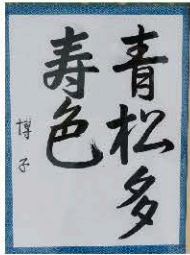 青松多
寿色
博子